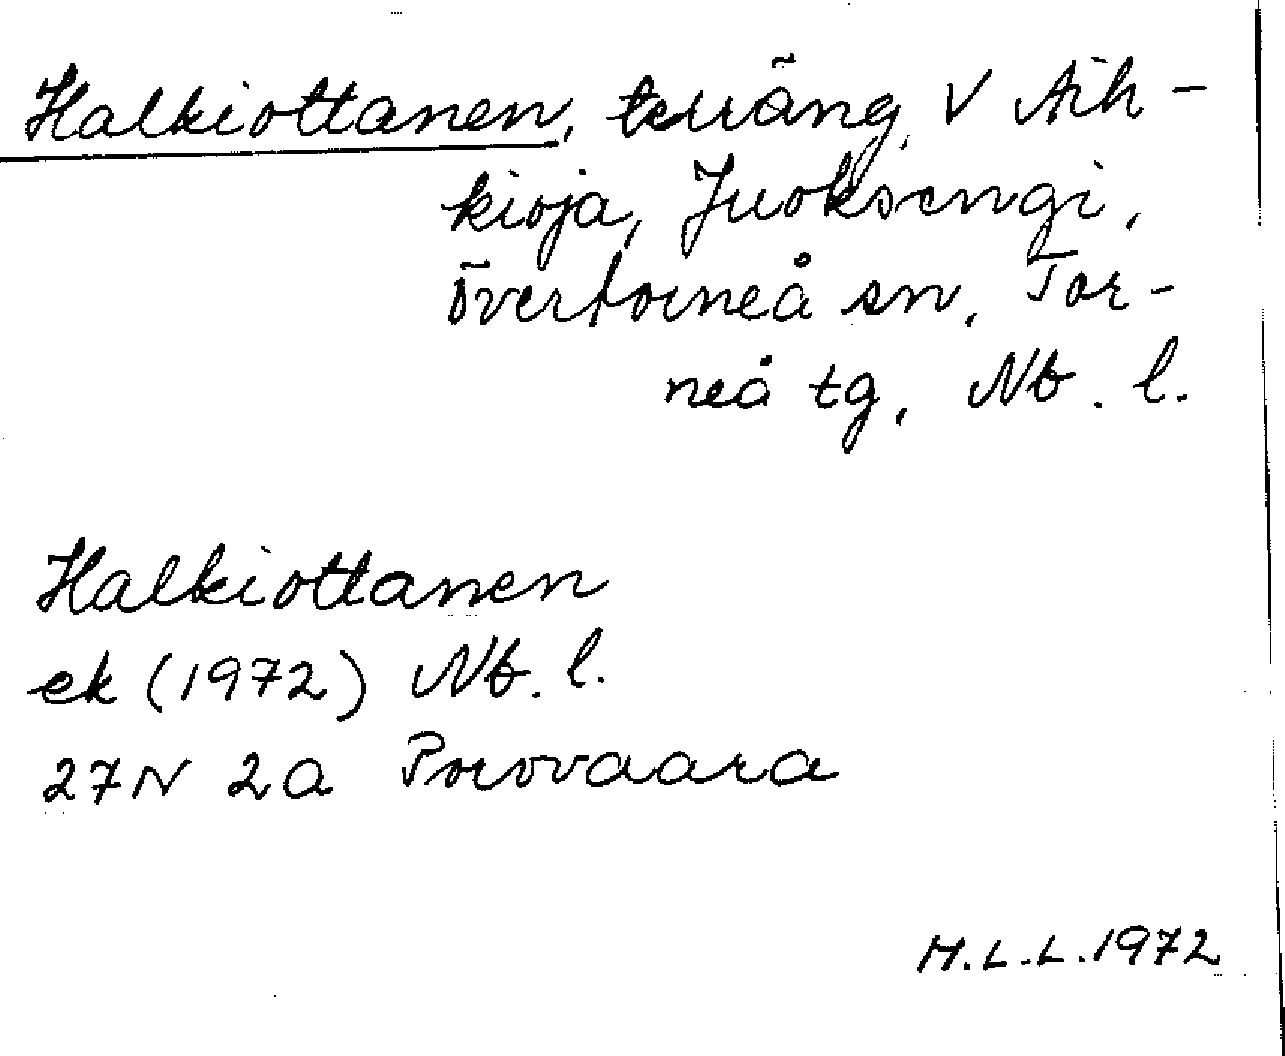 Halkiottanen, terräng, V Aih-
kioja, Juoksengi,
Övertorneå sn, Tor-
neå tg, Nb. l.
Halkiottanen
ek (1972) Nb. l.
27N 2a Porovaara
M.L.L. 1972